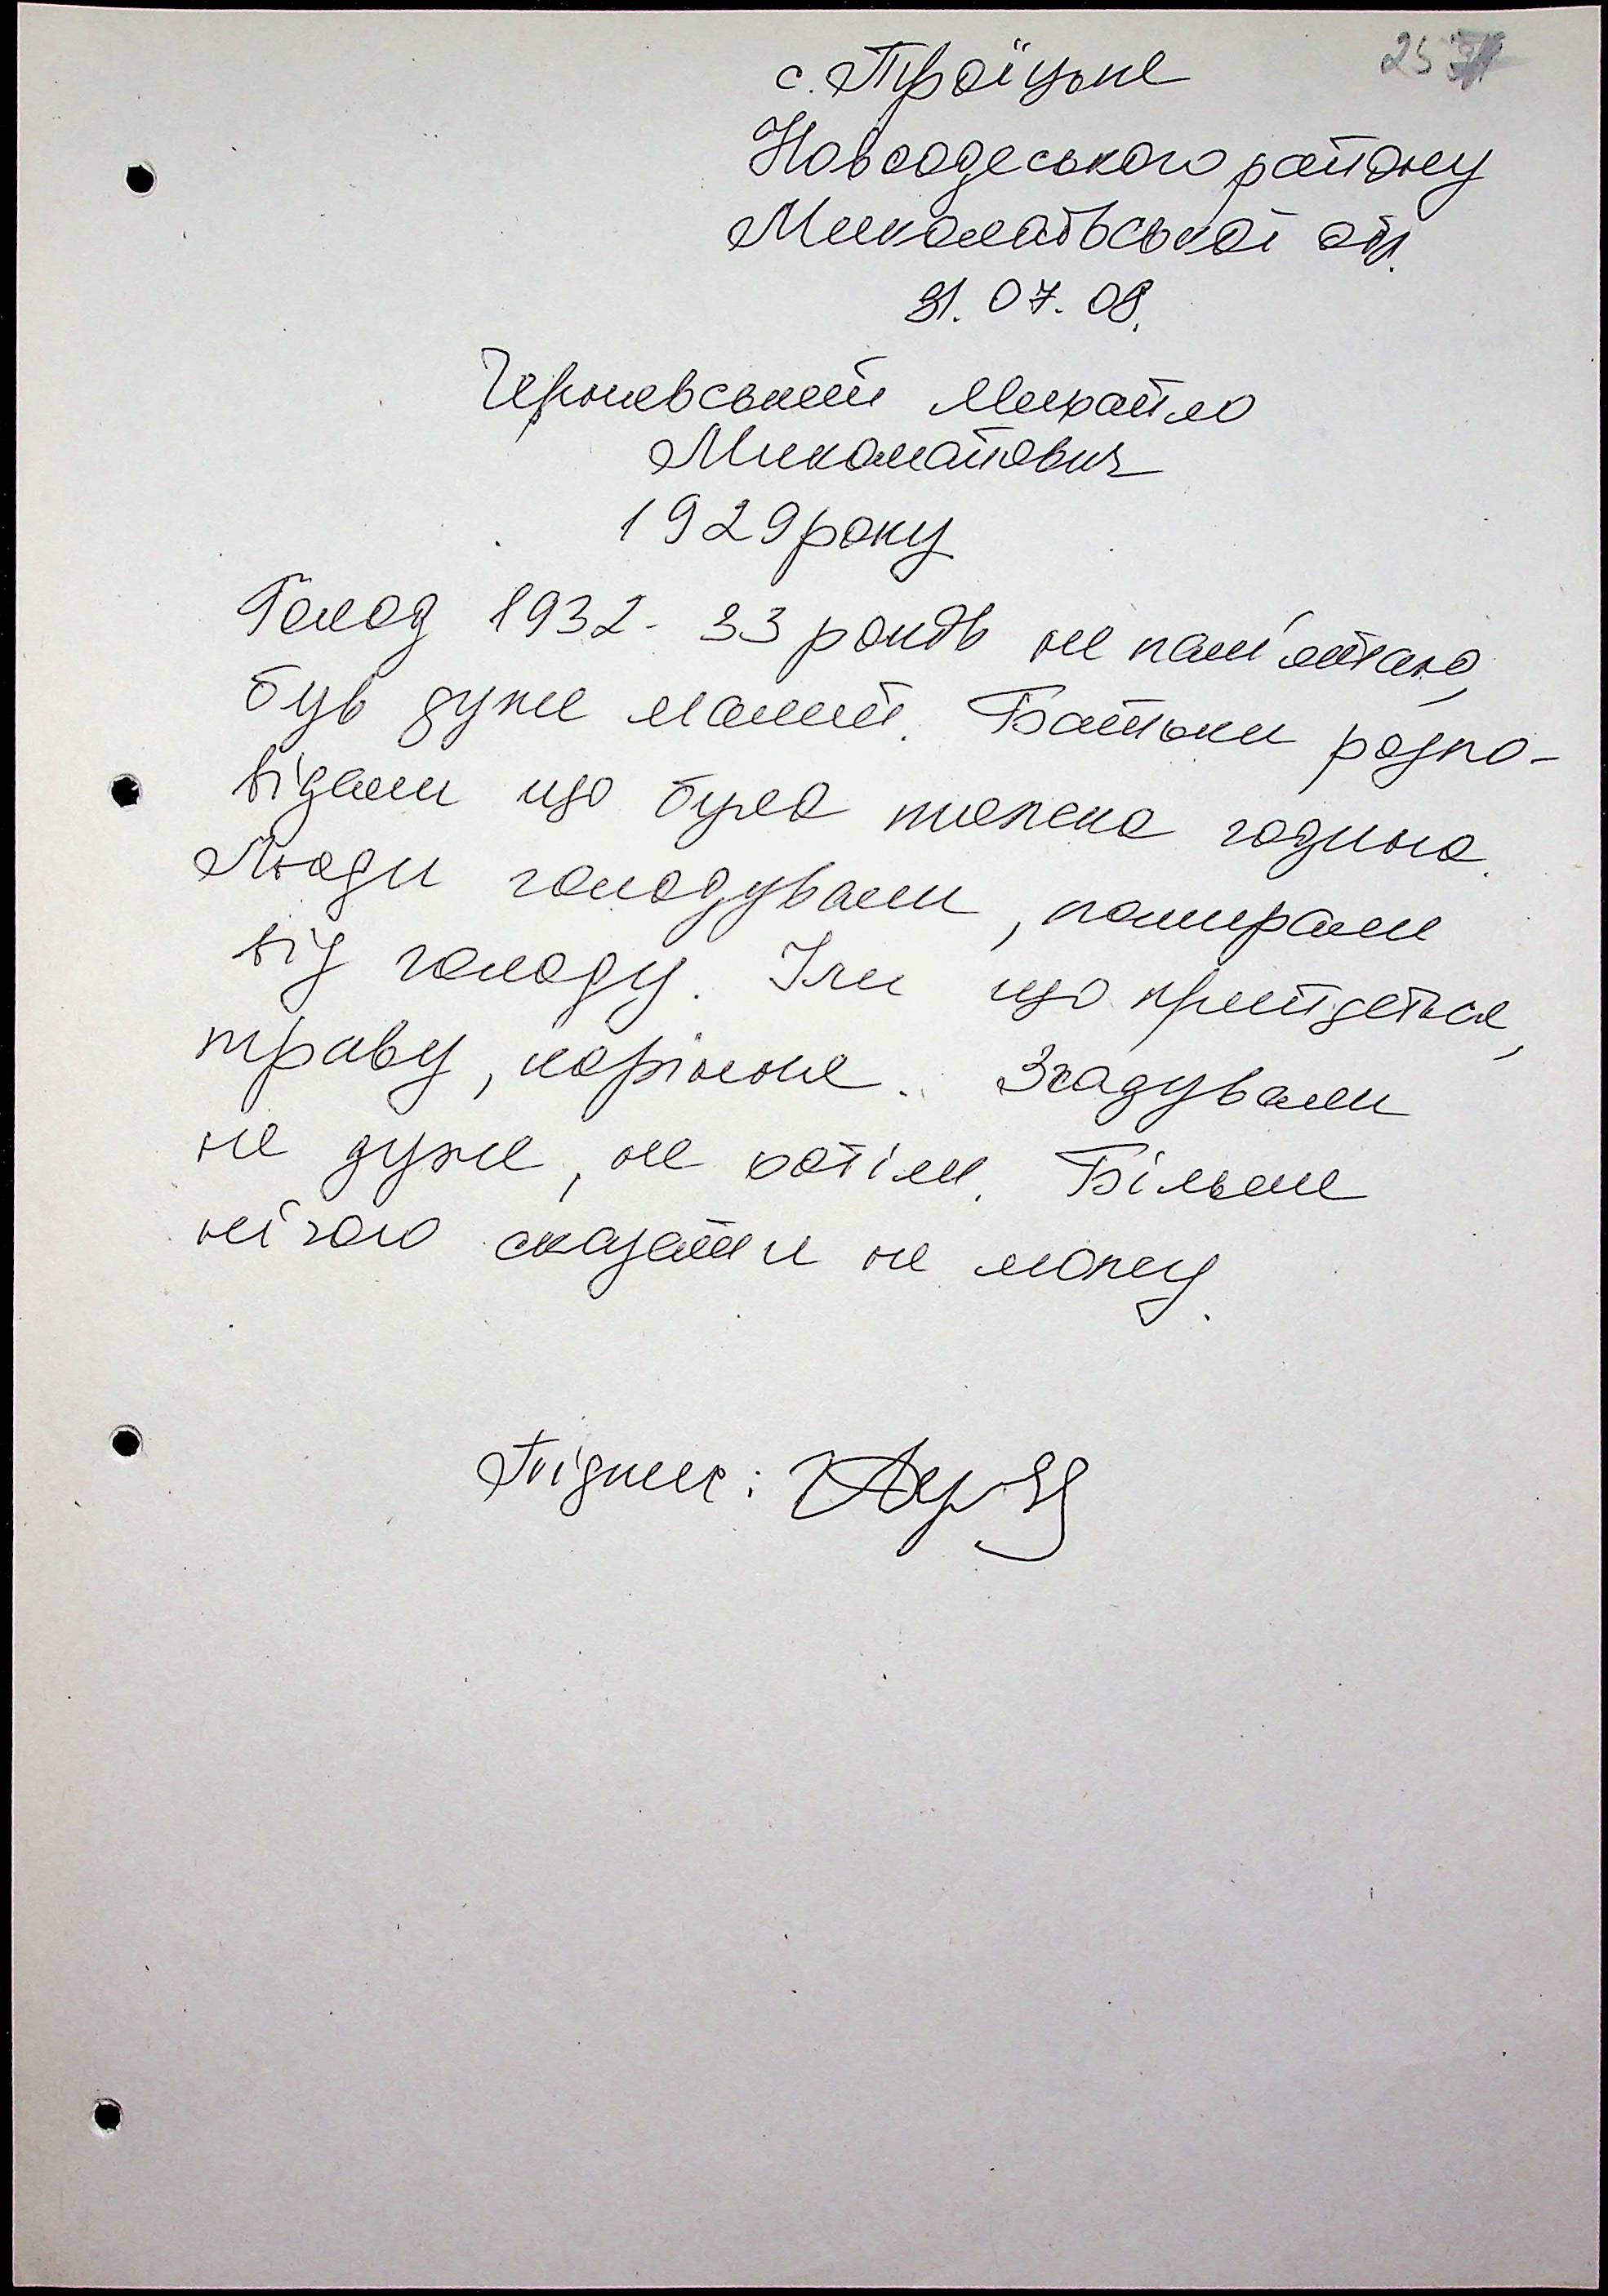 25
с. Троїцьке
Новоодеського району
Миколаївської обл.
31.07.08.
Черневський Михайло
Миколайович
1929 року
Голод 1932-33 років не пам'ятаю,
був дуже малий. Батьки розпо-
відали що була тяжка година.
Люди голодували, помирали
від голоду. Їли що прийдеться,
траву, коріння. Згадували
не дуже, не хотіли. Більше
нічого сказати не можу.
Підпис: